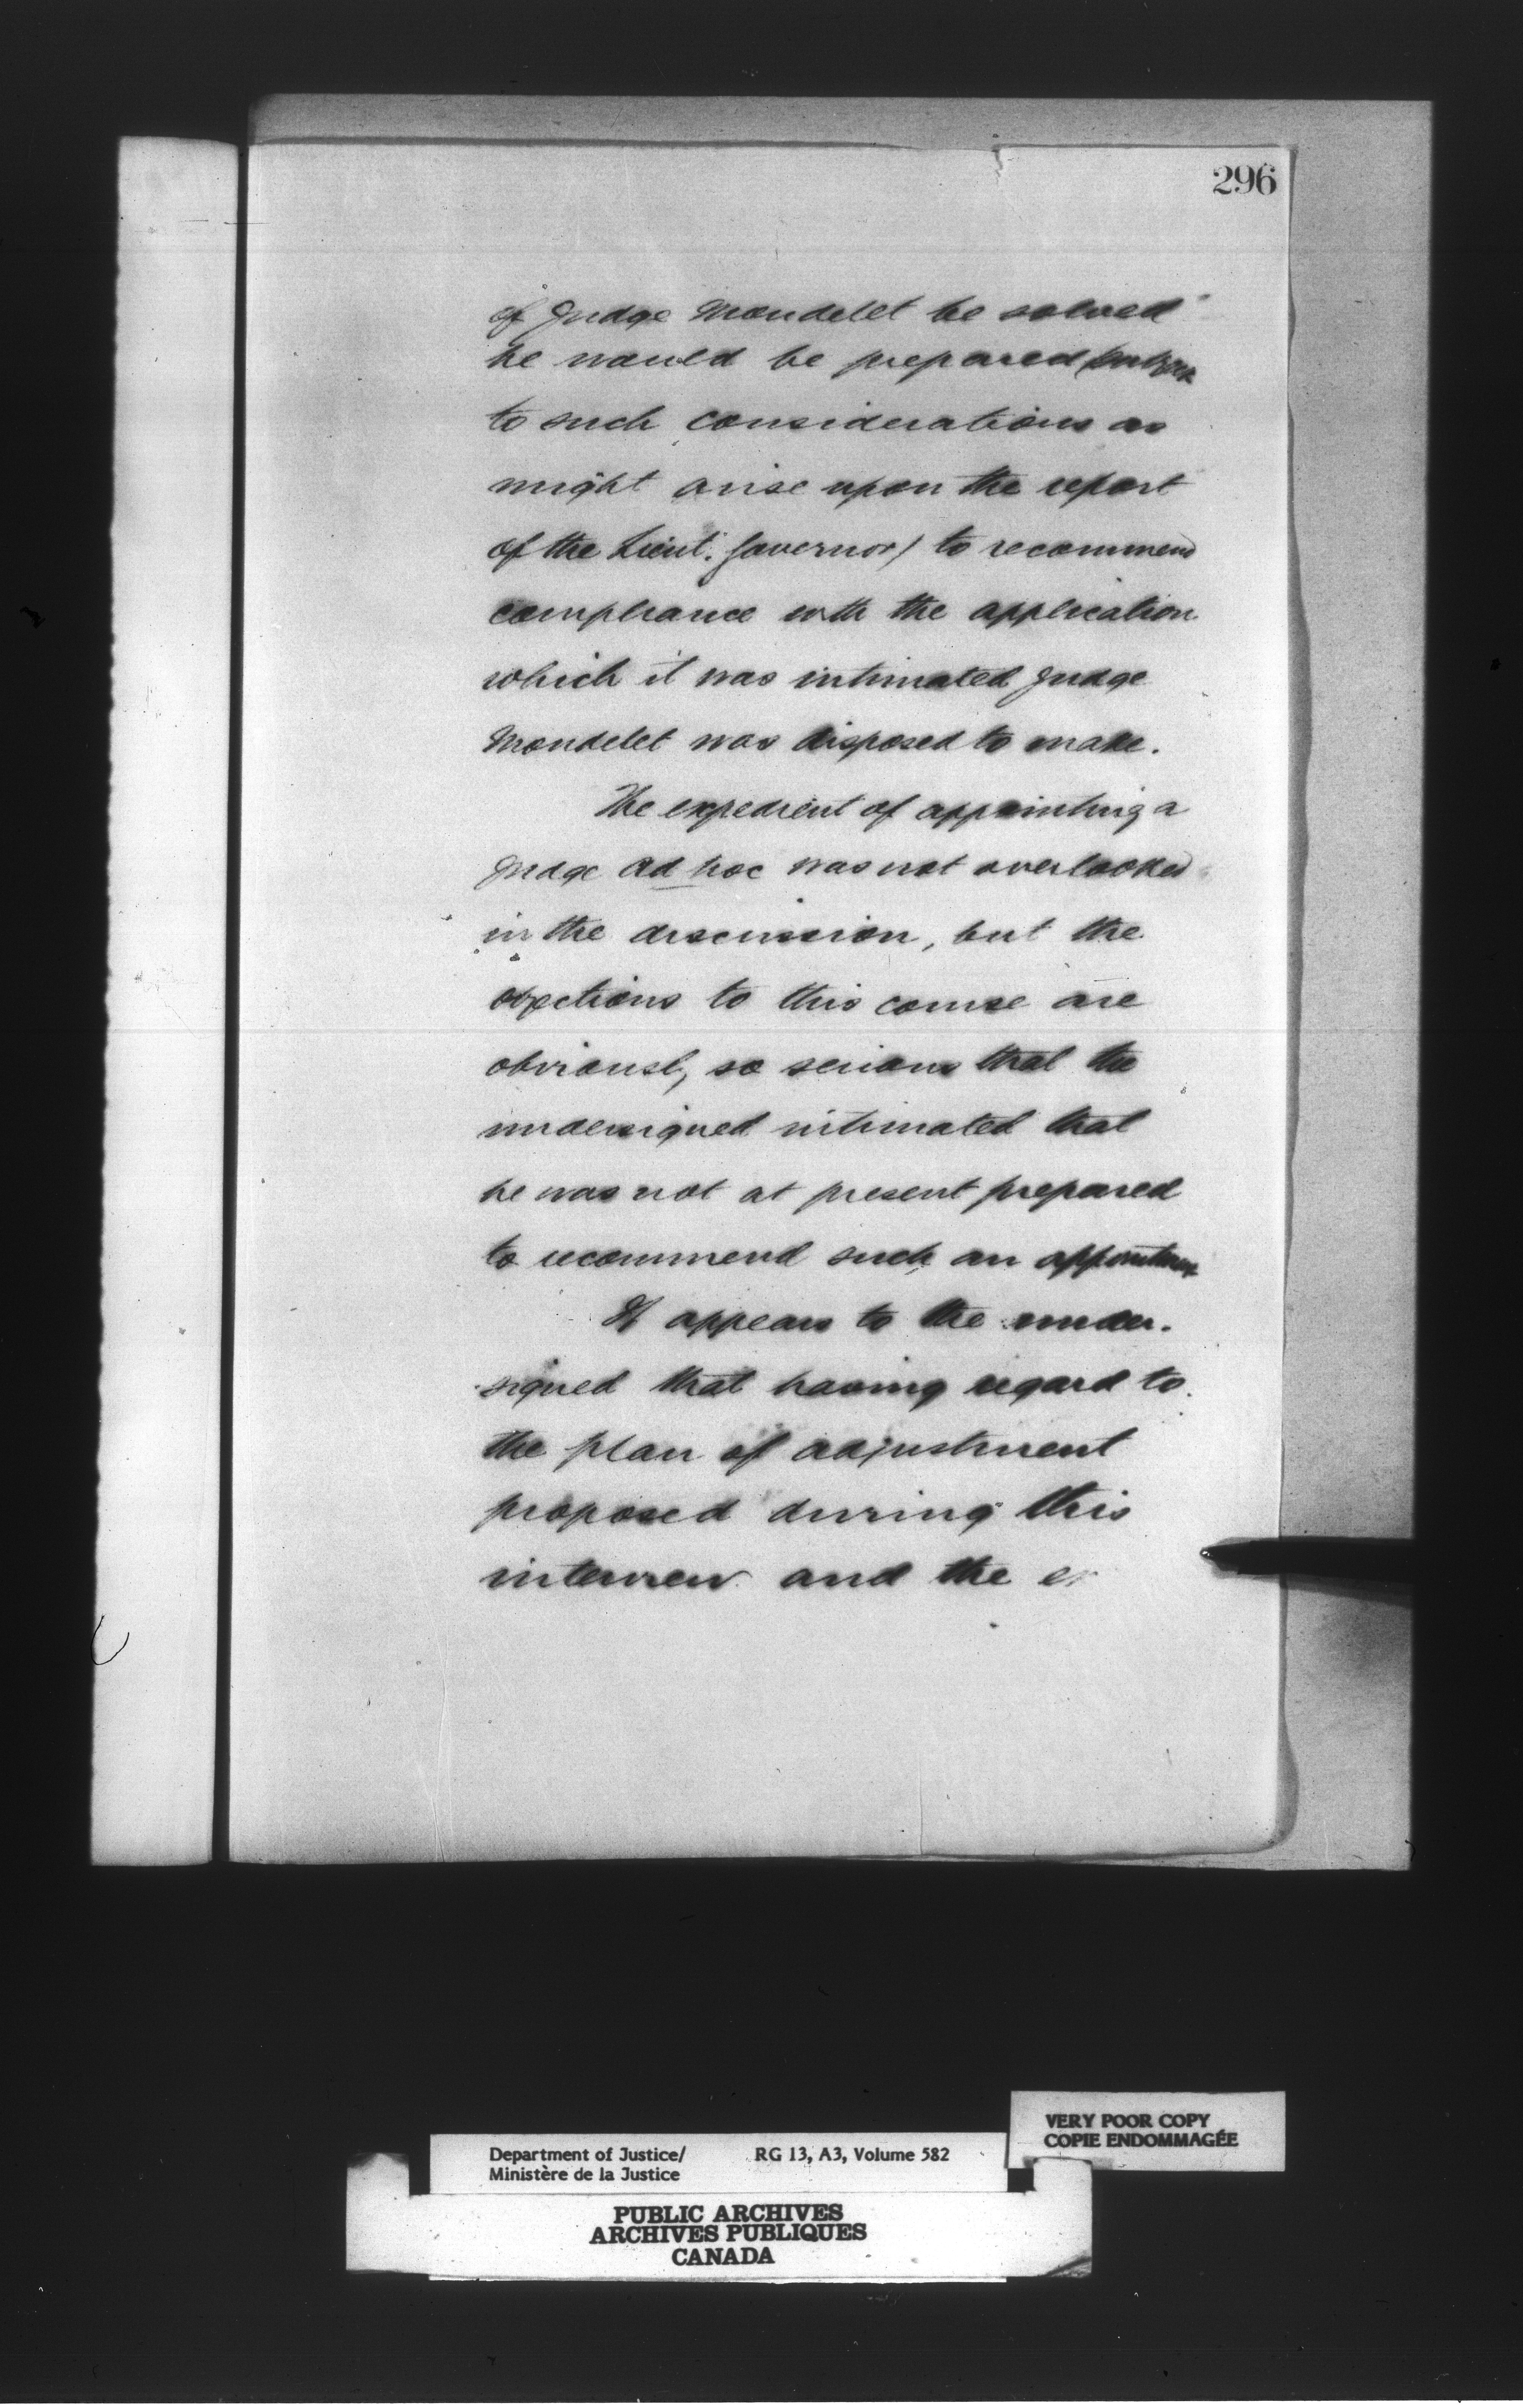 296
of Judge Mondelet be solved
he would be prepared (subject
to such considerations as
might arise upon the report
of the Lieut. Governor) to recommend
compliance with the application
which it was intimated Judge
Mondelet was disposed to make.
The expedient of appointing a
Judge ad hoc was not overlooked
in the discussion, but the
objections to this course are
obviously so serious that the
undersigned intimated that
he was not at present prepared
to recommend such an appointment
It appears to the under-
signed that having regard to
the plan of adjustment
proposed during this
interview and the
VERY POOR COPY
COPIE ENDOMMAGÉE
Department of Justice/ RG 13, A3, Volume 582
Ministère de la Justice
PUBLIC ARCHIVES
ARCHIVES PUBLIQUES
CANADA